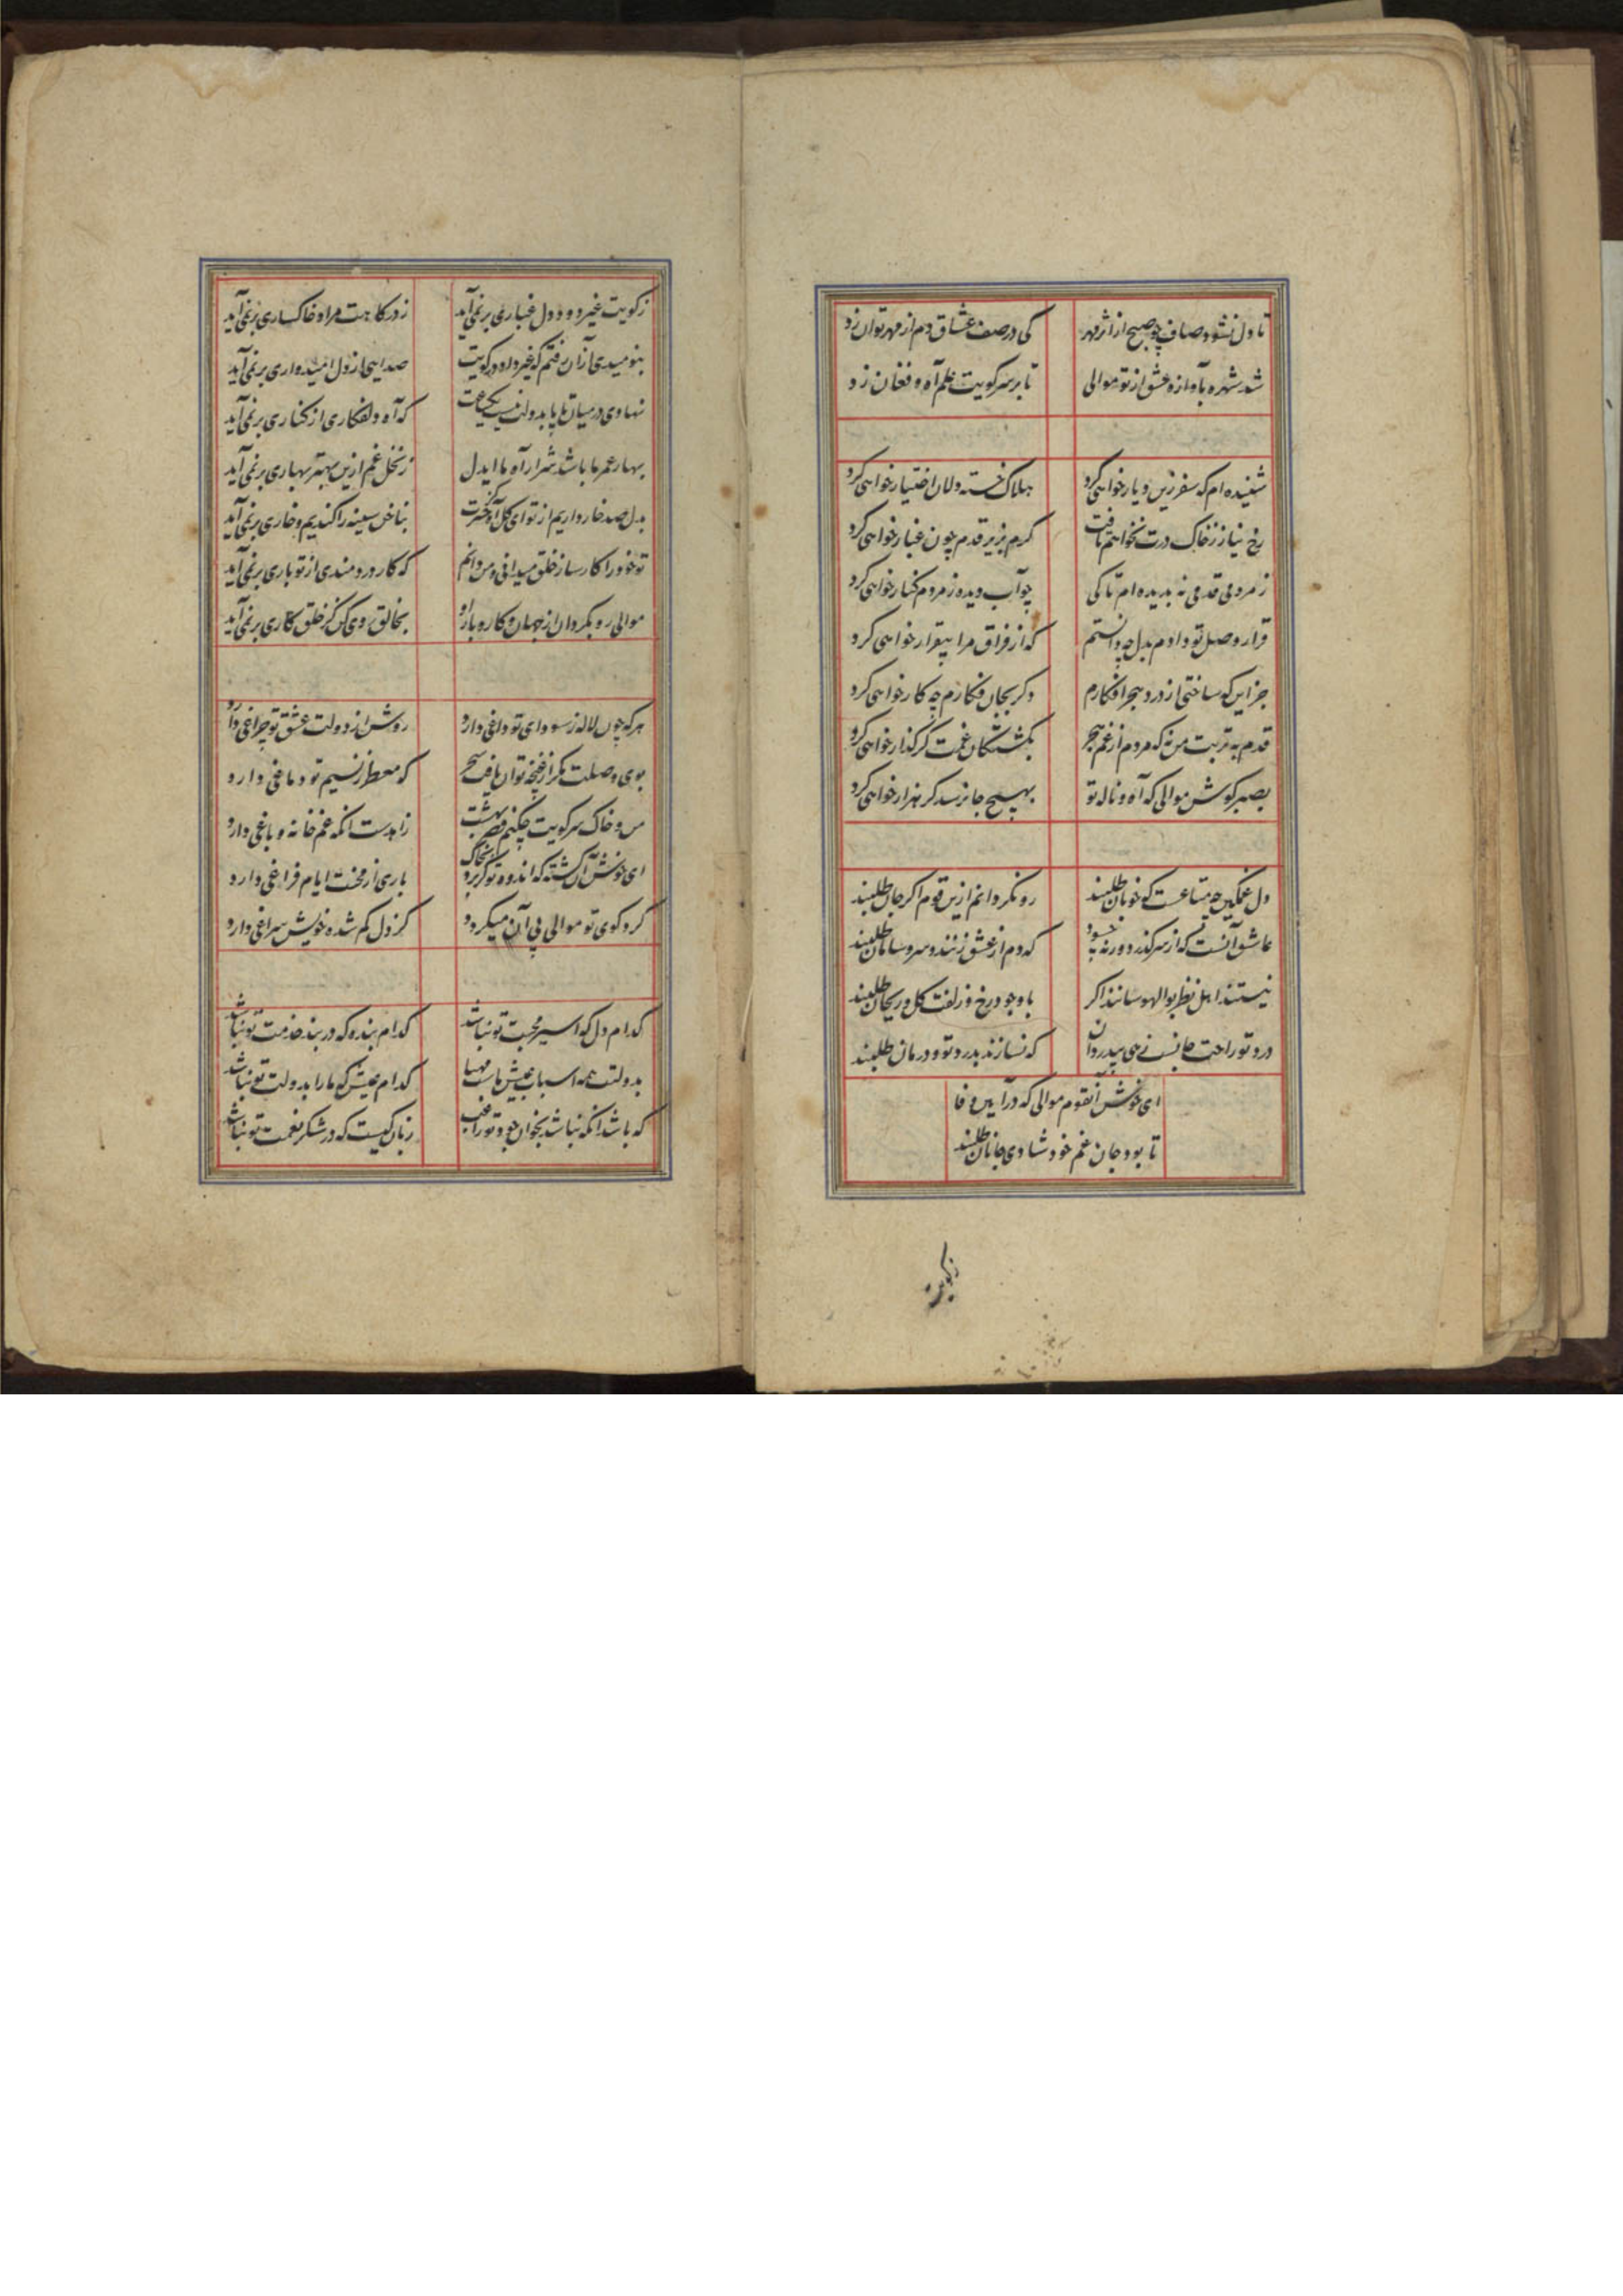 تا دل نشود صاف چو صبح از اثر مهر
کی در صف عشاق دم از مهر توان زد
شد شهره بآوازه عشق از تو موالی
تا بر سر کویت علم آه و فغان زد
شنیده ام که سفر زین دیار خواهی کرد
هلاک خسته دلان اختیار خواهی کرد
رخ نیاز ز خاک درت نخواهم تافت
کرم بزیر قدم چون غبار خواهی کرد
ز مردمی قدمی نه بدیده ام تا کی
چو آب دیده ز مردم کنار خواهی کرد
قرار وصل تو دادم بدل چه دانستم
که از فراق مرا بیقرار خواهی کرد
جز این که ساختی از درد هجر افکارم
دکر بجان فکارم چه کار خواهی کرد
قدم به تربت من نه که مردم از غم هجر
بکشتکان غمت کر کذار خواهی کرد
بصبر کوش موالی که آه و ناله تو
بهیچ جا نرسد کر هزار خواهی کرد
دل غمکین چه متاعست که خوبان طلبند
رو نکردانم ازین قوم اکر جان طلبند
عاشق آنست که از سر کذرد ورنه چه سود
که دم از عشق زنند و سر و سامان طلبند
نیستند اهل نظر بوالهوسانند اکر
با وجود رخ و زلفت کل و ریحان طلبند
درد تو راحت جانست زهی بیدردان
که نسازند بدرد تو و درمان طلبند
ای خوش آنقوم موالی که در آیین وفا
تا بود جان غم خود شادی جانان طلبند
زکویت
ز کویت غیر دود دل غباری بر نمی آید
ز درکاهت مراد خاکساری بر نمی آید
بنومیدی از آن رفتم که غیر داد در کویت
صدایی از دل امیدواری بر نمی آید
نهادی در میان تا پا بدولت نیست یکساعت
که آه دلفکاری از کناری بر نمی آید
بهار عمر ما باشد شرار آه ما ایدل
ز نخل غم ازین بهتر بهاری بر نمی آید
بدل صد خار داریم از تو ای کل آه کز حسرت
بناخن سینه را کندیم و خاری بر نمی آید
تو خود را کارساز خلق میدانی و من دانم
که کار دردمندی از تو باری بر نمی آید
موالی رو بکردان از جهان و کار و بار او
بخالق روی کن کز خلق کاری بر نمی آید
هر که چون لاله ز سودای تو داغی دارد
روشن از دولت عشق تو چراغی دارد
بوی وصلت مکر از غنچه توان یافت سحر
که معطر ز نسیم تو دماغی دارد
من و خاک سر کویت چکنم قصر بهشت
زاهدست انکه غم خانه و باغی دارد
ای خوش آن کشته که اندوه تو کر برد بخاک
باری از محنت ایام فراغی دارد
کرد کوی تو موالی پی آن میکردد
کز دل کم شده خویش سراغی دارد
کدام دل که اسیر محبت تو نباشد
کدام بنده که در بند خدمت تو نباشد
بدولتت همه اسباب عیش ماست مهیا
کدام عیش که ما را بدولت تو نباشد
که باشد انکه نباشد بخوان جود تو راغب
زبان کیست که در شکر نعمت تو نباشد